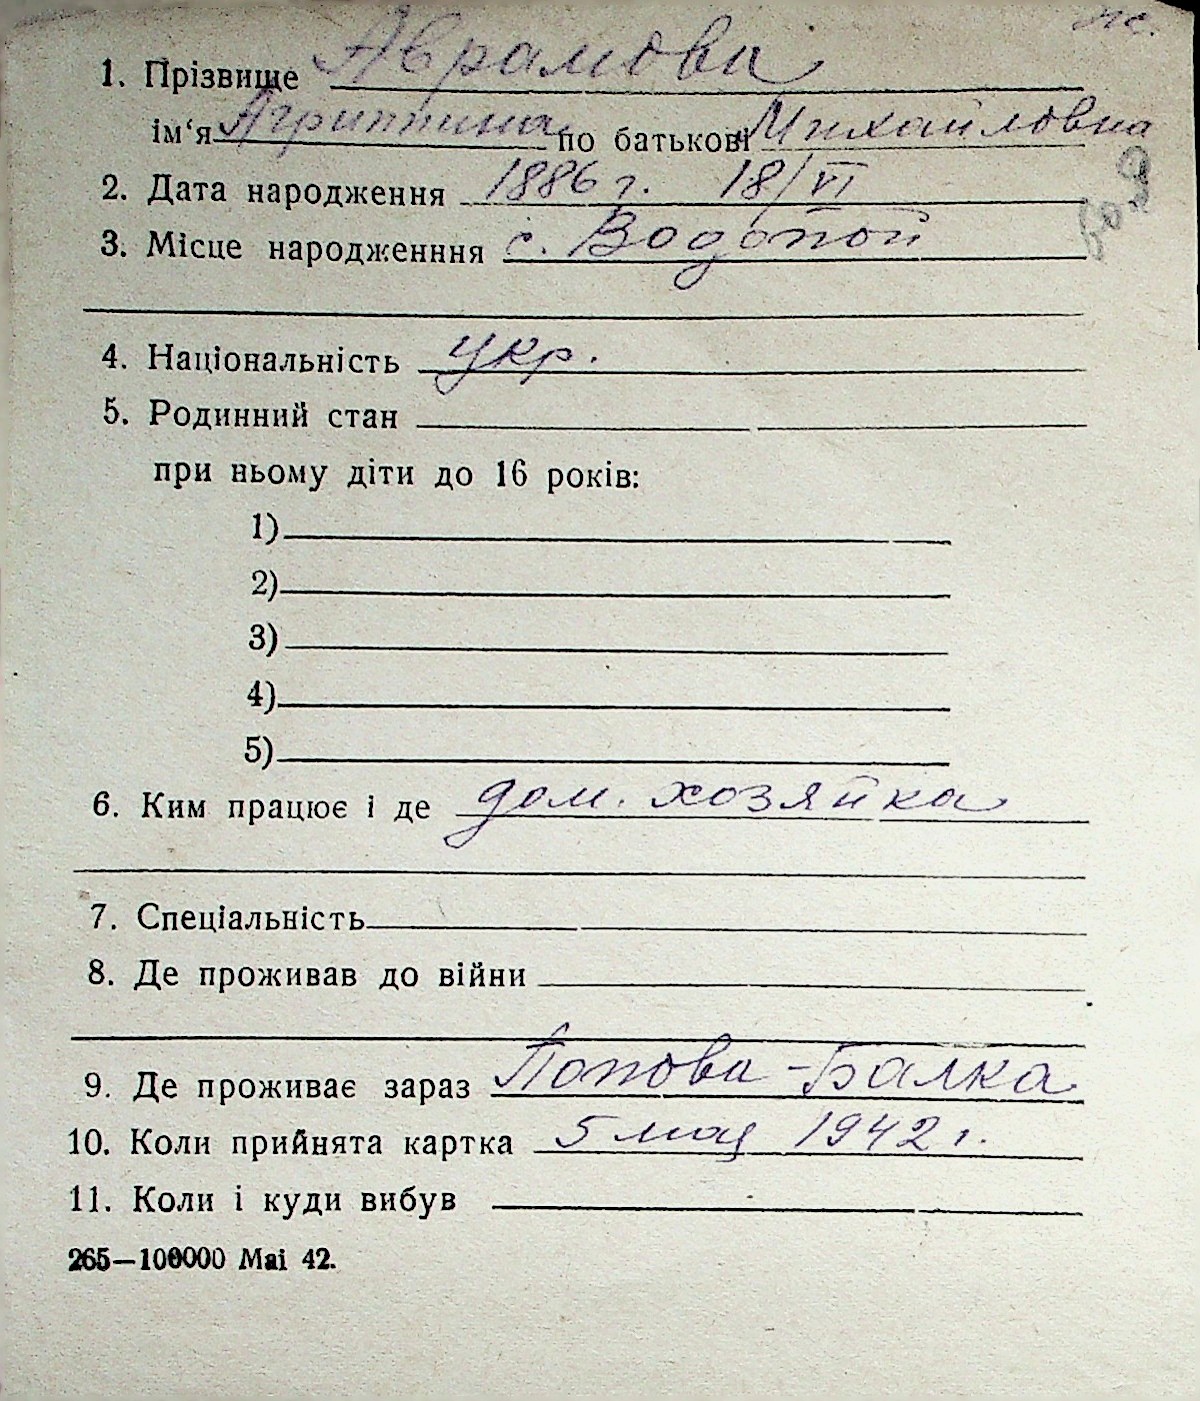 1. Прізвище Аврамова
ім‘я Агриппина по батькові Михайловна
2. Дата народження 1886 г. 18/VI
3. Місце народженння с. Водопой
4. Національність укр.
5. Родинний стан
при ньому діти до 16 років:
1)
2)
3)
4)
5)
6. Ким працює і де дом. хозяйка
7. Спеціальність
8. Де проживав до війни
9. Де проживає зараз Попова-Балка
10. Коли прийнята картка 5 мая 1942 г.
11. Коли і куди вибув
265—100000 Mai 42.